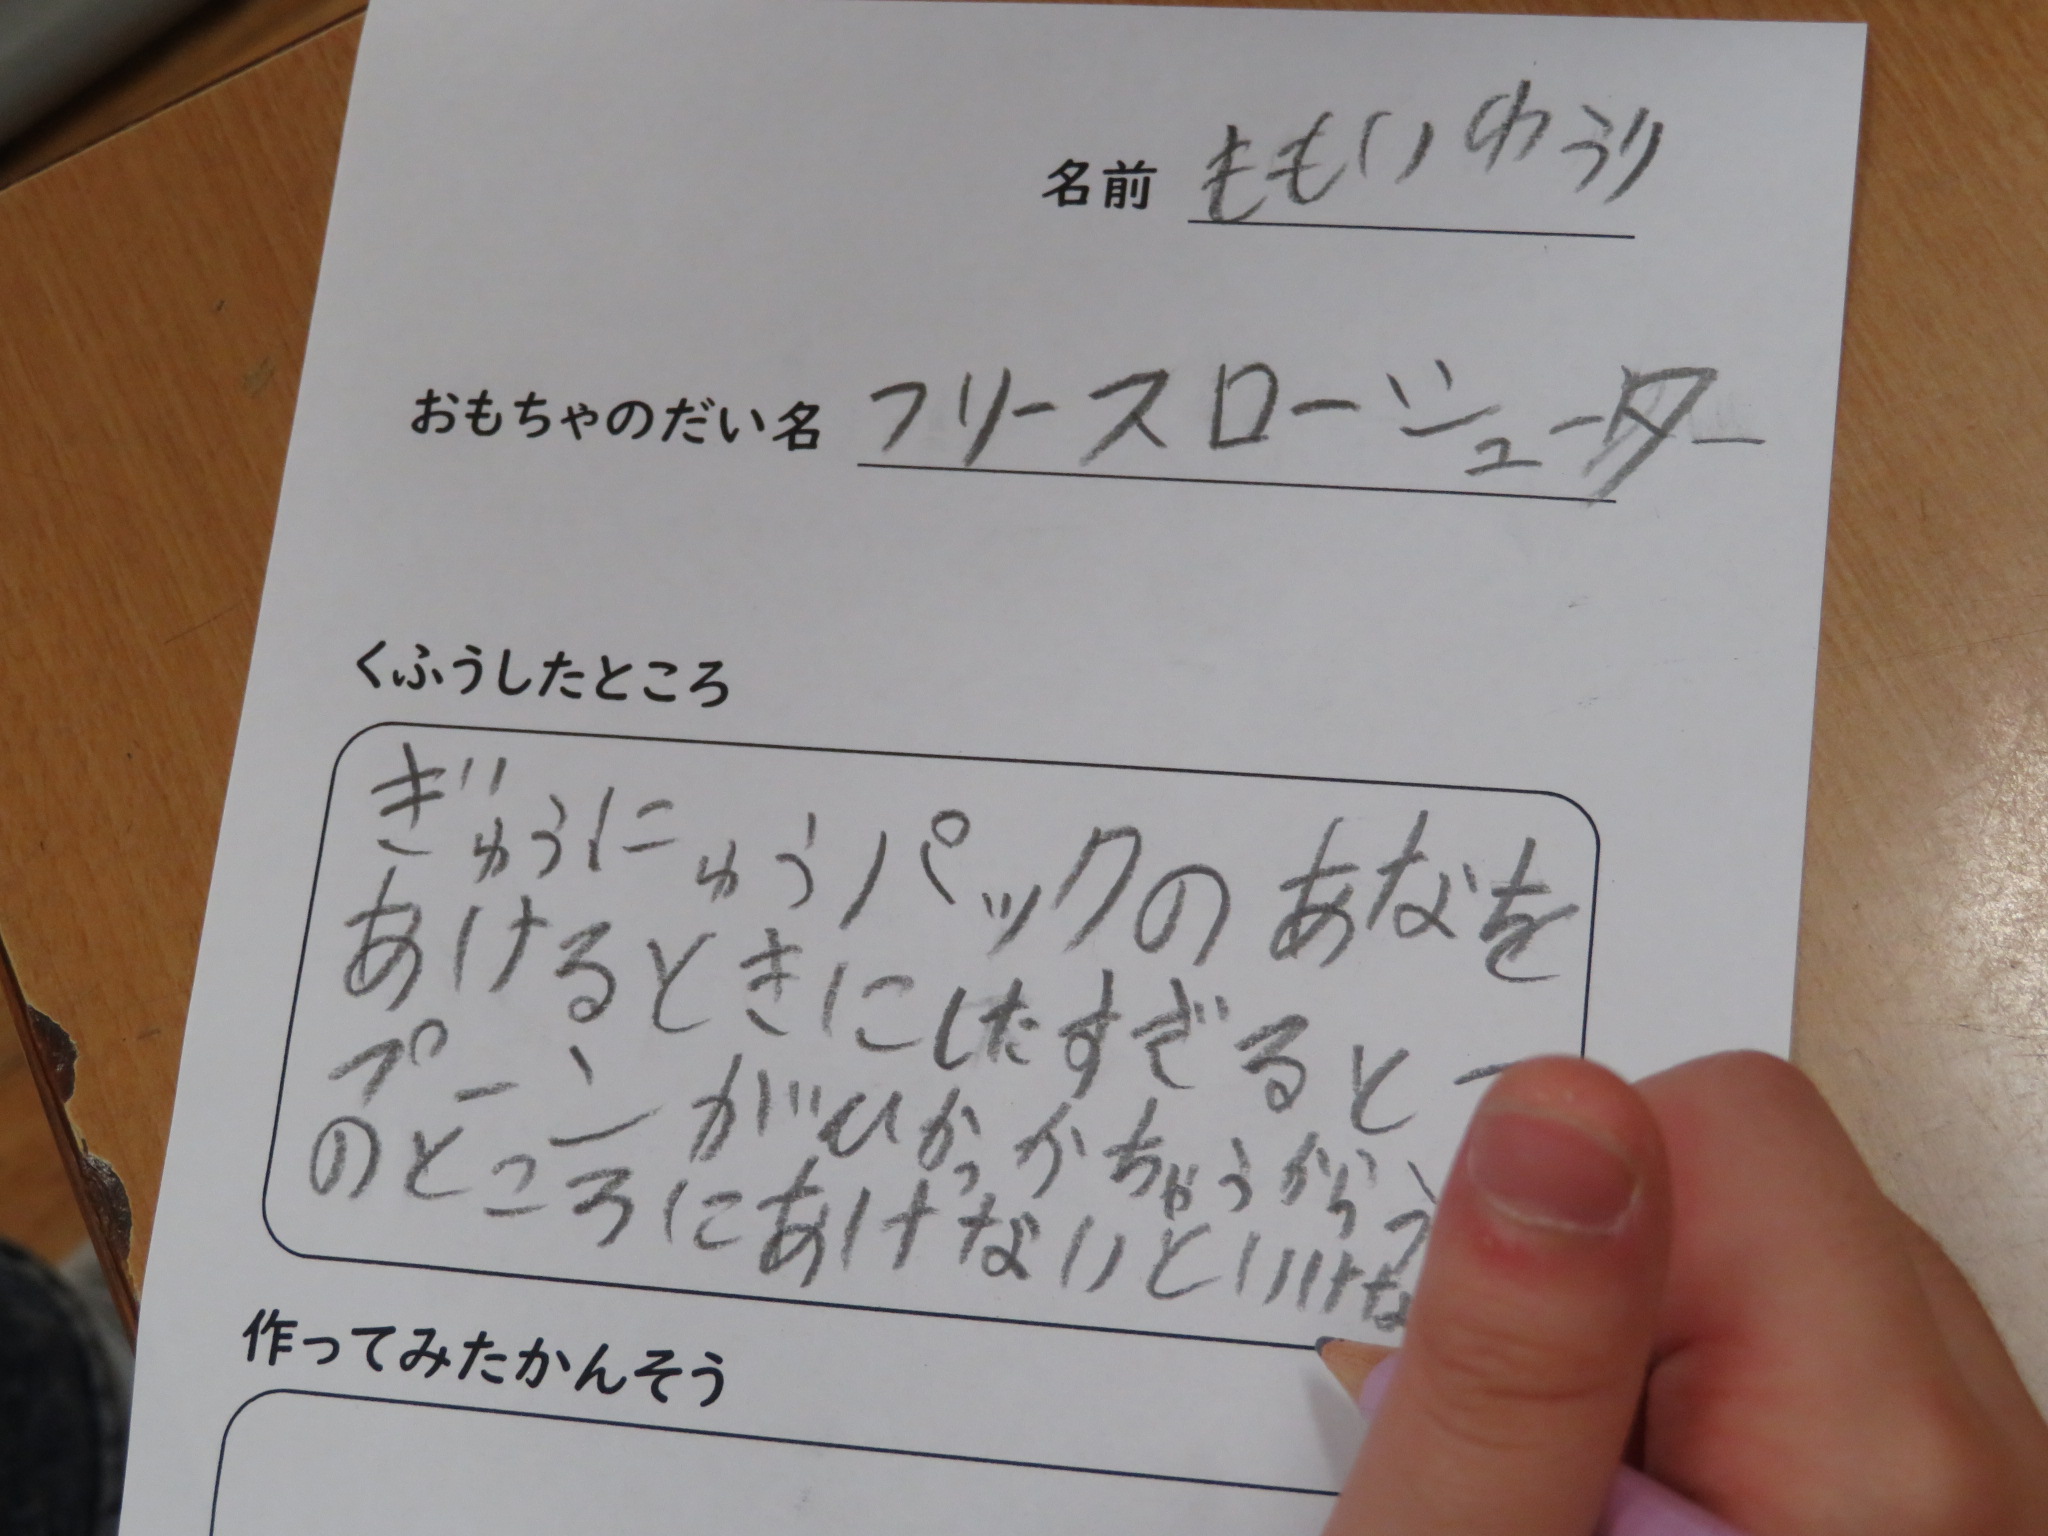 名前 ももいゆうり
おもちゃのだい名 フリースローシューター
くふうしたところ
ぎゅうにゅうパックのあなを
あけるときにしたすぎると
プーンがひっかかちゃうから
のところにあけないといけな
作ってみたかんそう